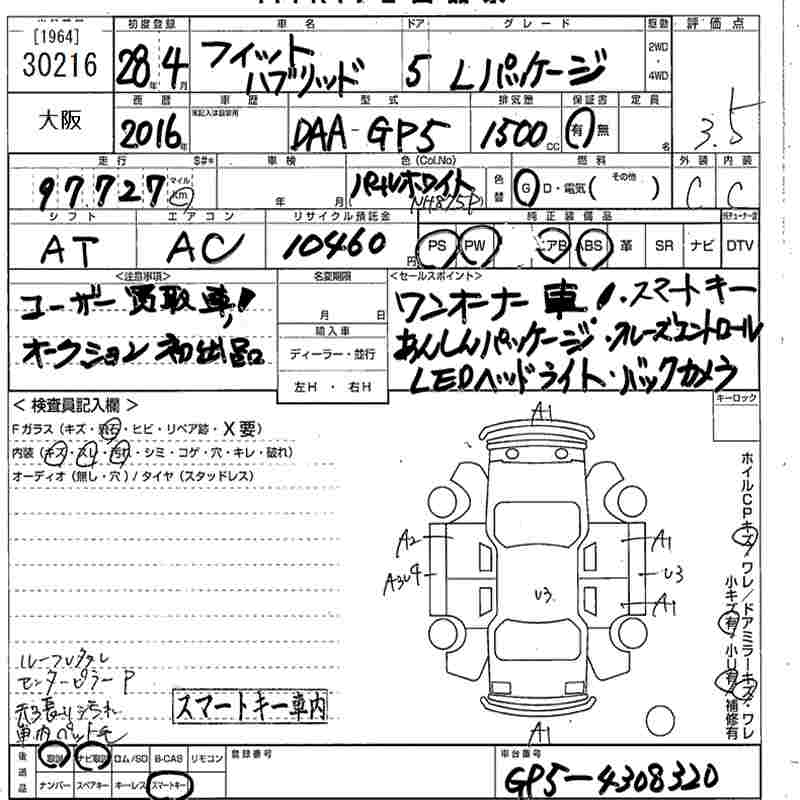 [1964]
30216
初度登録 車名 ドア グレード 駆動 評価点
28年 4月 フィット ハブリッド 5 Lパッケージ 2WD ・ 4WD
3.5
大阪
西暦 車歴 型式 排気量 保証書 定員
2016年 DAA-GP5 1500cc 有 無 名
走行 S#* 車検 色(Col.No) 燃料 外装 内装
97727 マイル Km 年 月 パールホワイト (NH875P) 色替 G・D・電気( その他 ) C C
シフト エアコン リサイクル預託金 純正装備品
AT AC 10460円 PS PW エアB ABS 革 SR ナビ DTV
<注意事項> 名変期限 <セールスポイント>
ユーザー買取車! 月 日 ワンオーナー車!・スマートキー
輸入車
オークション初出品 ディーラー・並行 あんしんパッケージ・クルーズコントロール
左H ・ 右H LEDヘッドライト・バックカメラ
キーロック
<検査員記入欄>
Fガラス(キズ・飛石・ヒビ・リペア跡・X要)
内装(キズ・スレ・汚れ・シミ・コゲ・穴・キレ・破れ)
オーディオ(無し・穴)/タイヤ(スタッドレス)
ホイルCPキズ・ワレ/ドアミラーキズ・ワレ
小キズ有・小U有・補修有
A1
A2 A1
A3U4 U3
U3
A1
A1
センターピラーP
天張り汚れ
車内ペット毛
スマートキー車内
後送品 取説 ナビ取説 ロム/SD B-CAS リモコン 登録番号 車台番号
ナンバー スペアキー キーレス スマートキー GP5-4308320